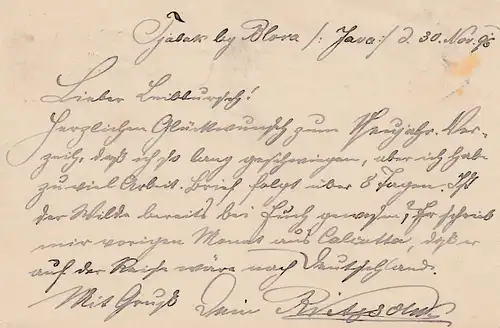 Tjabak bij Blora /: Java :/ d. 30. Nov. 98
Lieber Leibbursch!
Herzlichen Glückwunsch zum Neujahr. Ver-
zeih, daß ich so lang geschwiegen, aber ich habe
zu viel Arbeit. Brief folgt über 8 Tagen. Ist
der Wilde bereits bei Euch gewesen? Er schrieb
mir vorigen Monat aus Calcutta, daß er
auf der Reise wäre nach Deutschland.
Mit Gruß Dein